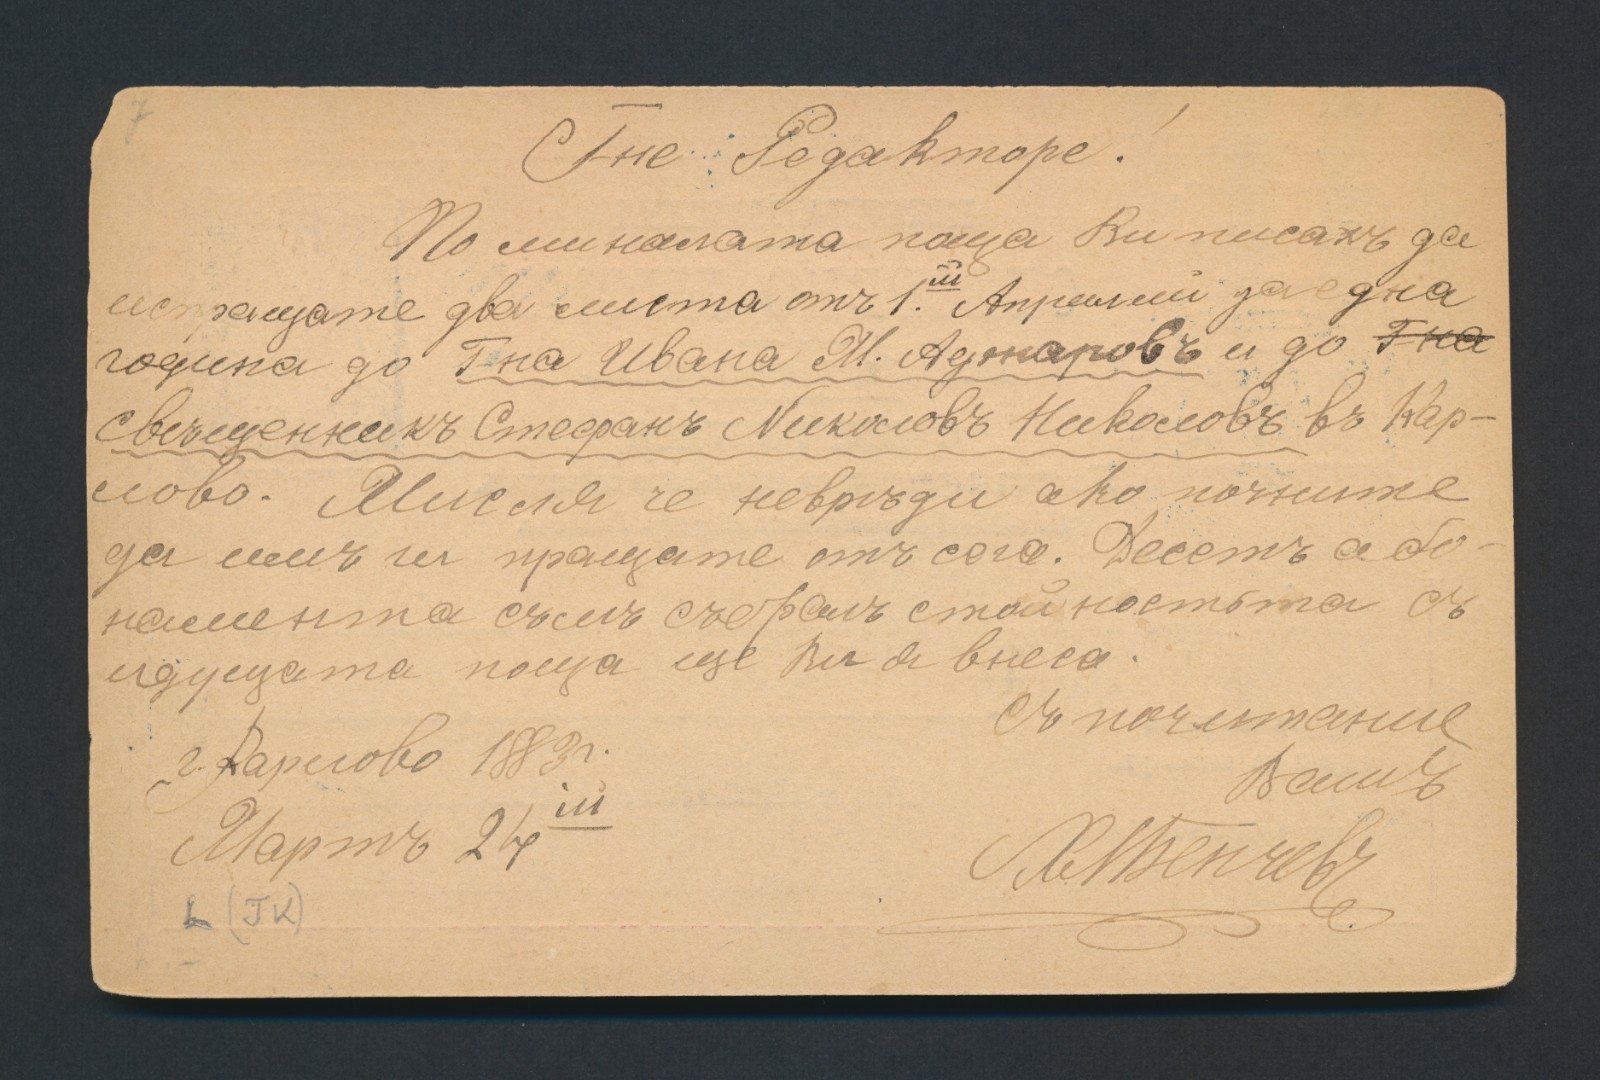 7
Гне Редакторе!
По миналата поща Ви писахъ да
испращате два листа отъ 1.ій Априлий за една
година до Гна Ивана М. Аджаровъ и до Гна
свещенникъ Стефанъ Николовъ Николовъ въ Кар-
лово. Мисля че невръди ако почните
да имъ ги пращате отъ сега. Десеть або-
намента съмъ събралъ стойностьта съ
идущата поща ще Ви я внеса.
Съ почитание
г. Карлово 1883 г.
Вашъ
Мартъ 24 ій
(JK)